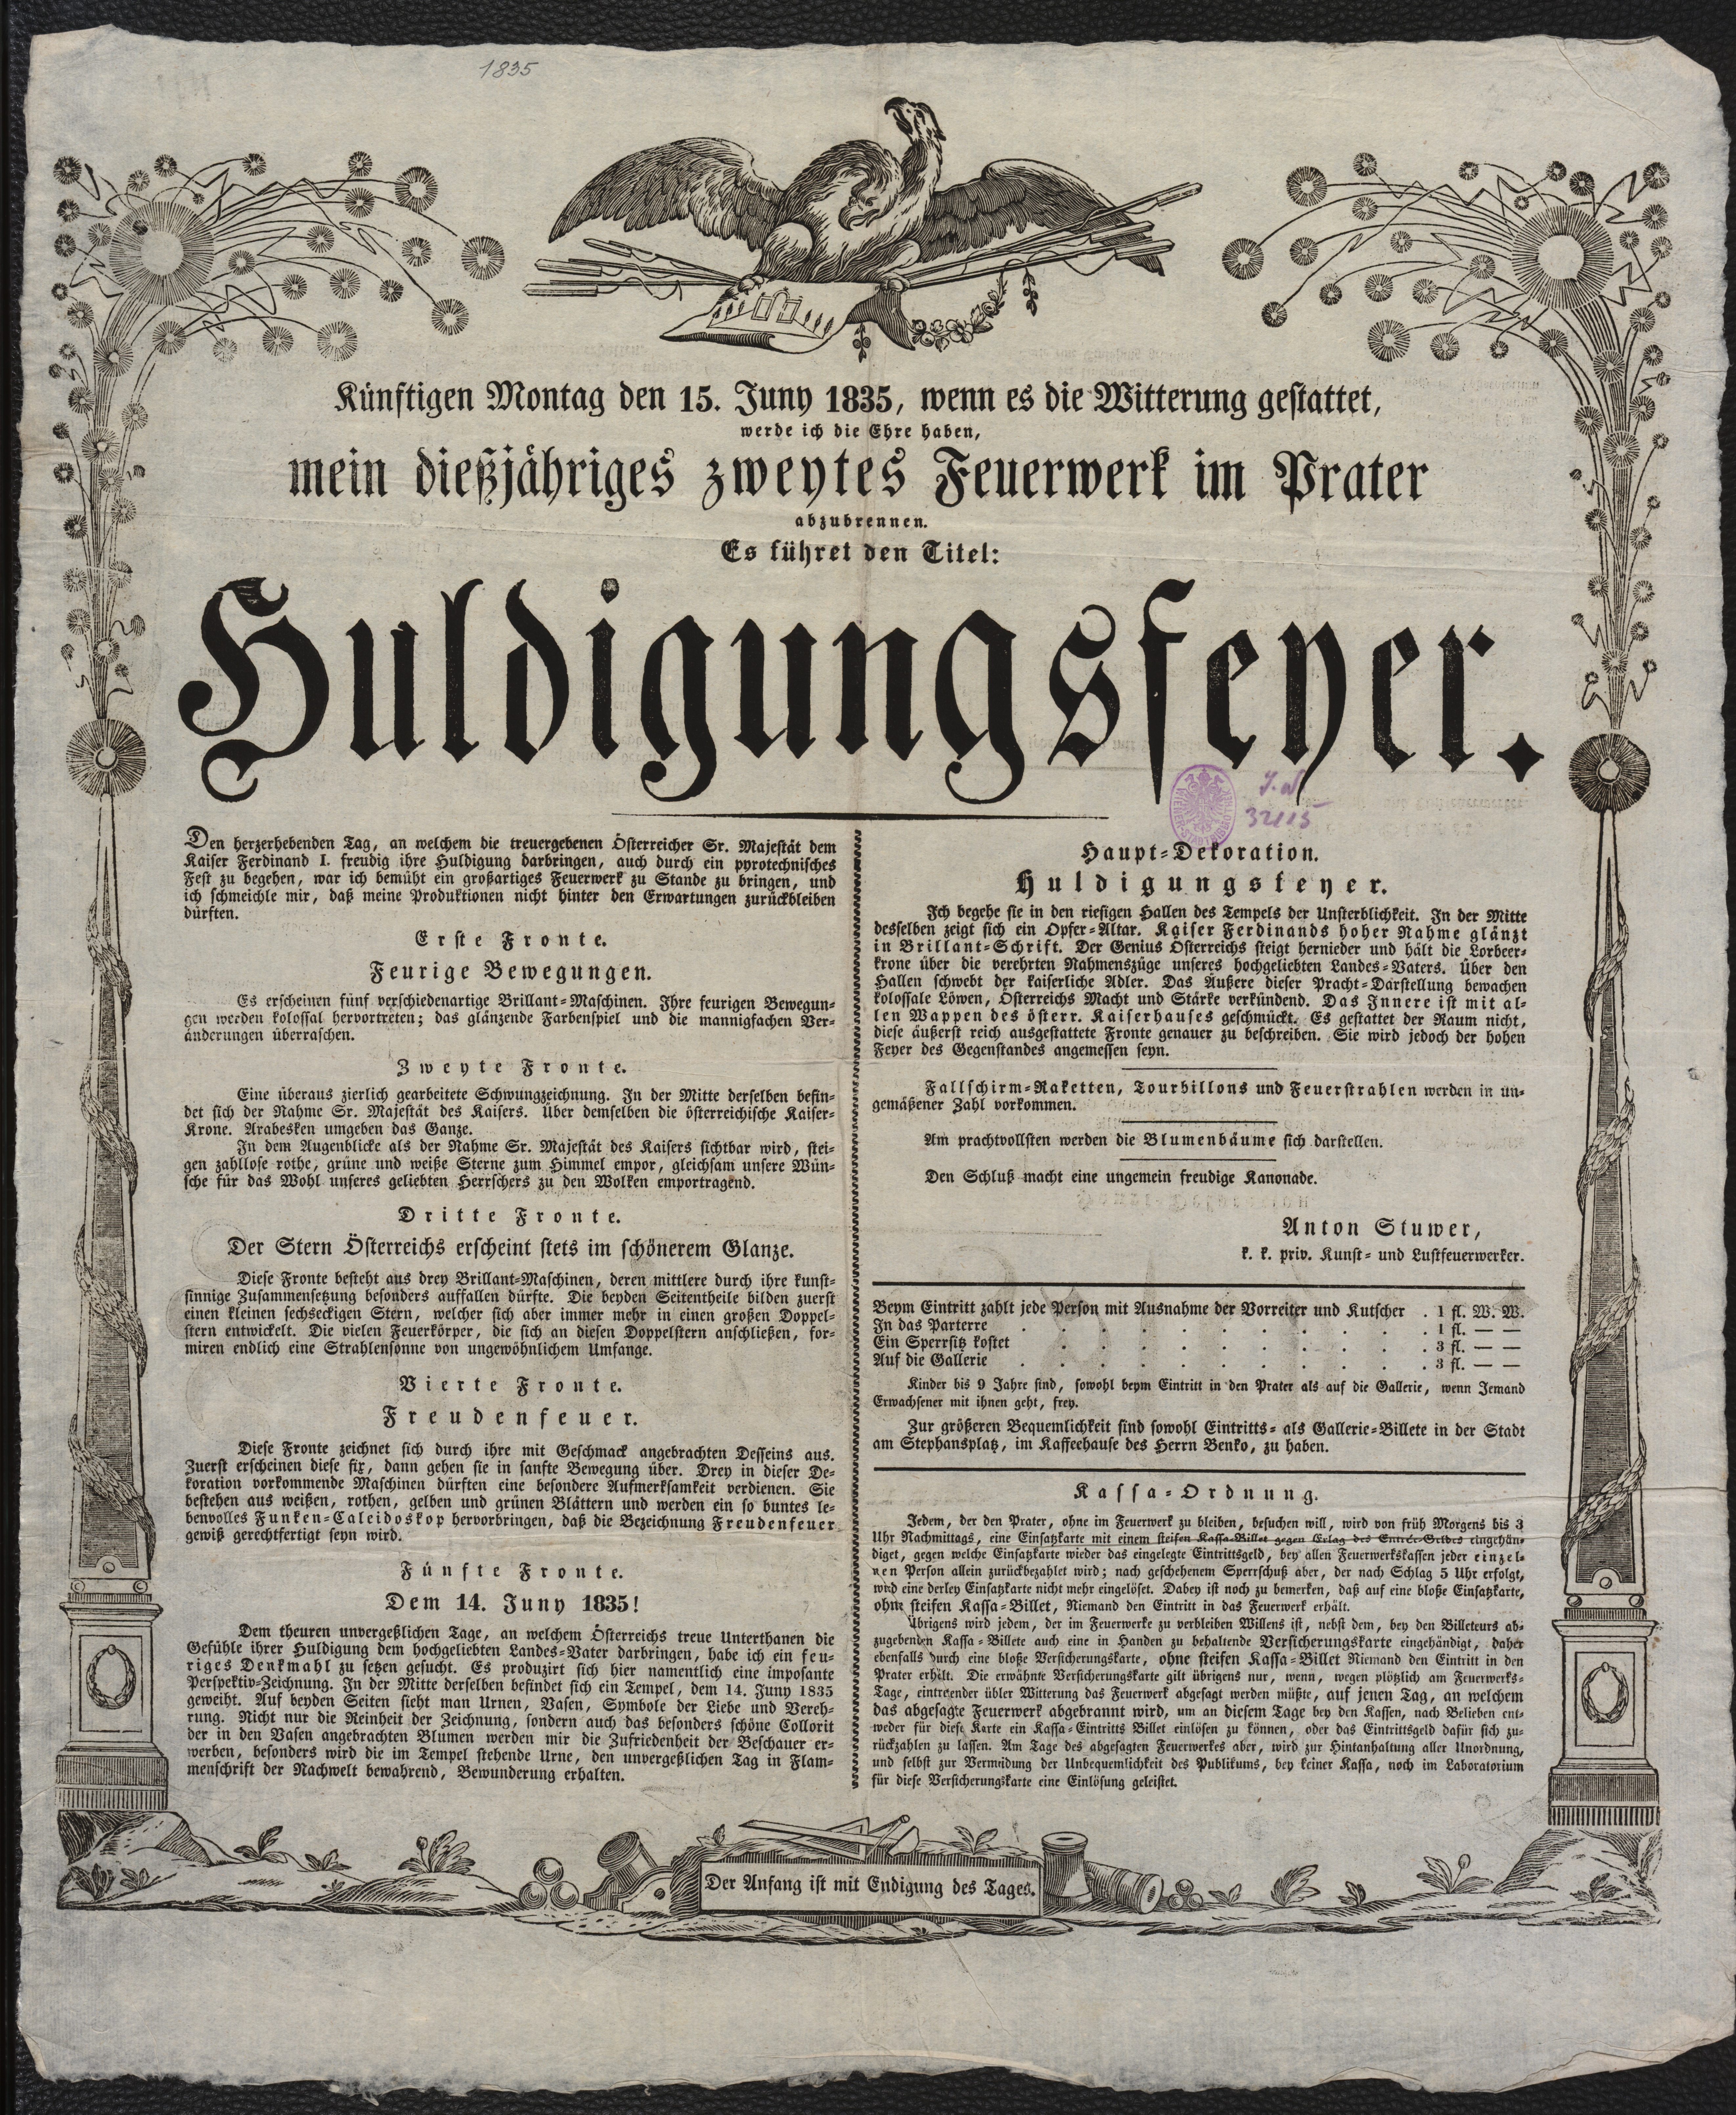 1835
Künftigen Montag den 15. Juny 1835, wenn es die Witterung gestattet,
werde ich die Ehre haben,
mein dießjähriges zweytes Feuerwerk im Prater
abzubrennen.
Es führet den Titel:
Huldigungsfeyer.
J. N.
32115
Den herzerhebenden Tag, an welchem die treuergebenen Österreicher Sr. Majestät dem
Kaiser Ferdinand I. freudig ihre Huldigung darbringen, auch durch ein pyrotechnisches
Fest zu begehen, war ich bemüht ein großartiges Feuerwerk zu Stande zu bringen, und
ich schmeichle mir, daß meine Produktionen nicht hinter den Erwartungen zurückbleiben
dürften.
Erste Fronte.
Feurige Bewegungen.
Es erscheinen fünf verschiedenartige Brillant-Maschinen. Ihre feurigen Bewegun-
gen werden kolossal hervortreten; das glänzende Farbenspiel und die mannigfachen Ver-
änderungen überraschen.
Zweyte Fronte.
Eine überaus zierlich gearbeitete Schwungzeichnung. In der Mitte derselben befin-
det sich der Nahme Sr. Majestät des Kaisers. Über demselben die österreichische Kaiser-
Krone. Arabesken umgeben das Ganze.
In dem Augenblicke als der Nahme Sr. Majestät des Kaisers sichtbar wird, stei-
gen zahllose rothe, grüne und weiße Sterne zum Himmel empor, gleichsam unsere Wün-
sche für das Wohl unseres geliebten Herrschers zu den Wolken emportragend.
Dritte Fronte.
Der Stern Österreichs erscheint stets im schönerem Glanze.
Diese Fronte besteht aus drey Brillant-Maschinen, deren mittlere durch ihre kunst-
sinnige Zusammensetzung besonders auffallen dürfte. Die beyden Seitentheile bilden zuerst
einen kleinen sechseckigen Stern, welcher sich aber immer mehr in einen großen Doppel-
stern entwickelt. Die vielen Feuerkörper, die sich an diesen Doppelstern anschließen, for-
miren endlich eine Strahlensonne von ungewöhnlichem Umfange.
Vierte Fronte.
Freudenfeuer.
Diese Fronte zeichnet sich durch ihre mit Geschmack angebrachten Desseins aus.
Zuerst erscheinen diese fix, dann gehen sie in sanfte Bewegung über. Drey in dieser De-
koration vorkommende Maschinen dürften eine besondere Aufmerksamkeit verdienen. Sie
bestehen aus weißen, rothen, gelben und grünen Blättern und werden ein so buntes le-
benvolles Funken-Caleidoskop hervorbringen, daß die Bezeichnung Freudenfeuer
gewiß gerechtfertigt seyn wird.
Fünfte Fronte.
Dem 14. Juny 1835!
Dem theuren unvergeßlichen Tage, an welchem Österreichs treue Unterthanen die
Gefühle ihrer Huldigung dem hochgeliebten Landes-Vater darbringen, habe ich ein feu-
riges Denkmahl zu setzen gesucht. Es produzirt sich hier namentlich eine imposante
Perspektiv-Zeichnung. In der Mitte derselben befindet sich ein Tempel, dem 14. Juny 1835
geweiht. Auf beyden Seiten sieht man Urnen, Vasen, Symbole der Liebe und Vereh-
rung. Nicht nur die Reinheit der Zeichnung, sondern auch das besonders schöne Collorit
der in den Vasen angebrachten Blumen werden mir die Zufriedenheit der Beschauer er-
werben, besonders wird die im Tempel stehende Urne, den unvergeßlichen Tag in Flam-
menschrift der Nachwelt bewahrend, Bewunderung erhalten.
Haupt-Dekoration.
Huldigungsfeyer.
Ich begehe sie in den riesigen Hallen des Tempels der Unsterblichkeit. In der Mitte
desselben zeigt sich ein Opfer-Altar. Kaiser Ferdinands hoher Nahme glänzt
in Brillant-Schrift. Der Genius Österreichs steigt hernieder und hält die Lorbeer-
krone über die verehrten Nahmenszüge unseres hochgeliebten Landes-Vaters. Über den
Hallen schwebt der kaiserliche Adler. Das Äußere dieser Pracht-Darstellung bewachen
kolossale Löwen, Österreichs Macht und Stärke verkündend. Das Innere ist mit al-
len Wappen des österr. Kaiserhauses geschmückt. Es gestattet der Raum nicht,
diese äußerst reich ausgestattete Fronte genauer zu beschreiben. Sie wird jedoch der hohen
Feyer des Gegenstandes angemessen seyn.
Fallschirm-Raketten, Tourbillons und Feuerstrahlen werden in un-
gemäßener Zahl vorkommen.
Am prachtvollsten werden die Blumenbäume sich darstellen.
Den Schluß macht eine ungemein freudige Kanonade.
Anton Stuwer,
k. k. priv. Kunst- und Lustfeuerwerker.
Beym Eintritt zahlt jede Person mit Ausnahme der Vorreiter und Kutscher . 1 fl. W. W.
In das Parterre . . . . . . . . . . 1 fl. — —
Ein Sperrsitz kostet . . . . . . . . . 3 fl. — —
Auf die Gallerie . . . . . . . . . . 3 fl. — —
Kinder bis 9 Jahre sind, sowohl beym Eintritt in den Prater als auf die Gallerie, wenn Jemand
Erwachsener mit ihnen geht, frey.
Zur größeren Bequemlichkeit sind sowohl Eintritts- als Gallerie-Billete in der Stadt
am Stephansplatz, im Kaffeehause des Herrn Benko, zu haben.
Kassa-Ordnung.
Jedem, der den Prater, ohne im Feuerwerk zu bleiben, besuchen will, wird von früh Morgens bis 3
Uhr Nachmittags, eine Einsatzkarte mit einem steifen Kassa-Billet gegen Erlag des Entrée-Geldes eingehän-
diget, gegen welche Einsatzkarte wieder das eingelegte Eintrittsgeld, bey allen Feuerwerkskassen jeder einzel-
nen Person allein zurückbezahlt wird; nach geschehenem Sperrschuß aber, der nach Schlag 5 Uhr erfolgt,
wird eine derley Einsatzkarte nicht mehr eingelöset. Dabey ist noch zu bemerken, daß auf eine bloße Einsatzkarte,
ohne steifen Kassa-Billet, Niemand den Eintritt in das Feuerwerk erhält.
Übrigens wird jedem, der im Feuerwerke zu verbleiben Willens ist, nebst dem, bey den Billeteurs ab-
zugebenden Kassa-Billete auch eine in Handen zu behaltende Versicherungskarte eingehändigt, daher
ebenfalls durch eine bloße Versicherungskarte, ohne steifen Kassa-Billet Niemand den Eintritt in den
Prater erhält. Die erwähnte Versicherungskarte gilt übrigens nur, wenn, wegen plötzlich am Feuerwerks-
Tage, eintreender übler Witterung das Feuerwerk abgesagt werden müßte, auf jenen Tag, an welchem
das abgesagte Feuerwerk abgebrannt wird, um an diesem Tage bey den Kassen, nach Belieben ent-
weder für diese Karte ein Kassa-Eintritts Billet einlösen zu können, oder das Eintrittsgeld dafür sich zu-
rückzahlen zu lassen. Am Tage des abgesagten Feuerwerkes aber, wird zur Hintanhaltung aller Unordnung,
und selbst zur Vermeidung der Unbequemlichkeit des Publikums, bey keiner Kassa, noch im Laboratorium
für diese Versicherungskarte eine Einlösung geleistet.
Der Anfang ist mit Endigung des Tages.